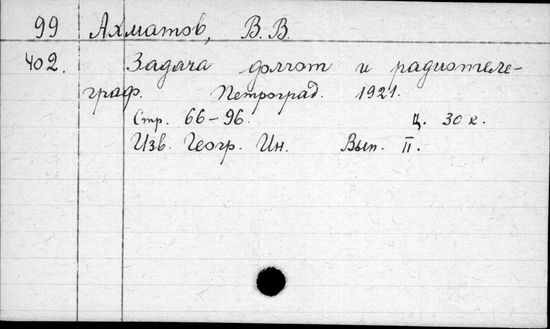 99 Ахматов, В. В.
402. Задача долгот и радиотеле-
граф. Петроград. 1921.
Стр. 66-96. Ц. 30 к.
Изв. Геогр. Ин. Вып. II.